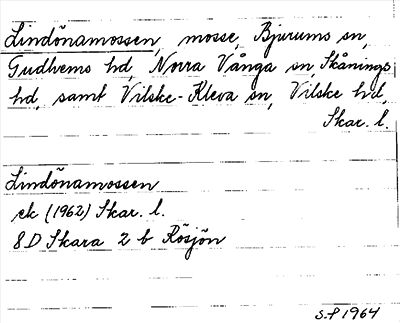 Lindönamossen, mosse, Bjurums sn,
Gudhems hd, Norra Vånga sn, Skånings
hd, samt Vilske-Kleva sn, Vilske hd,
Skar. l.
Lindönamossen
ek (1962) Skar. l.
8D Skara 2 b Rösjön
S.F 1964